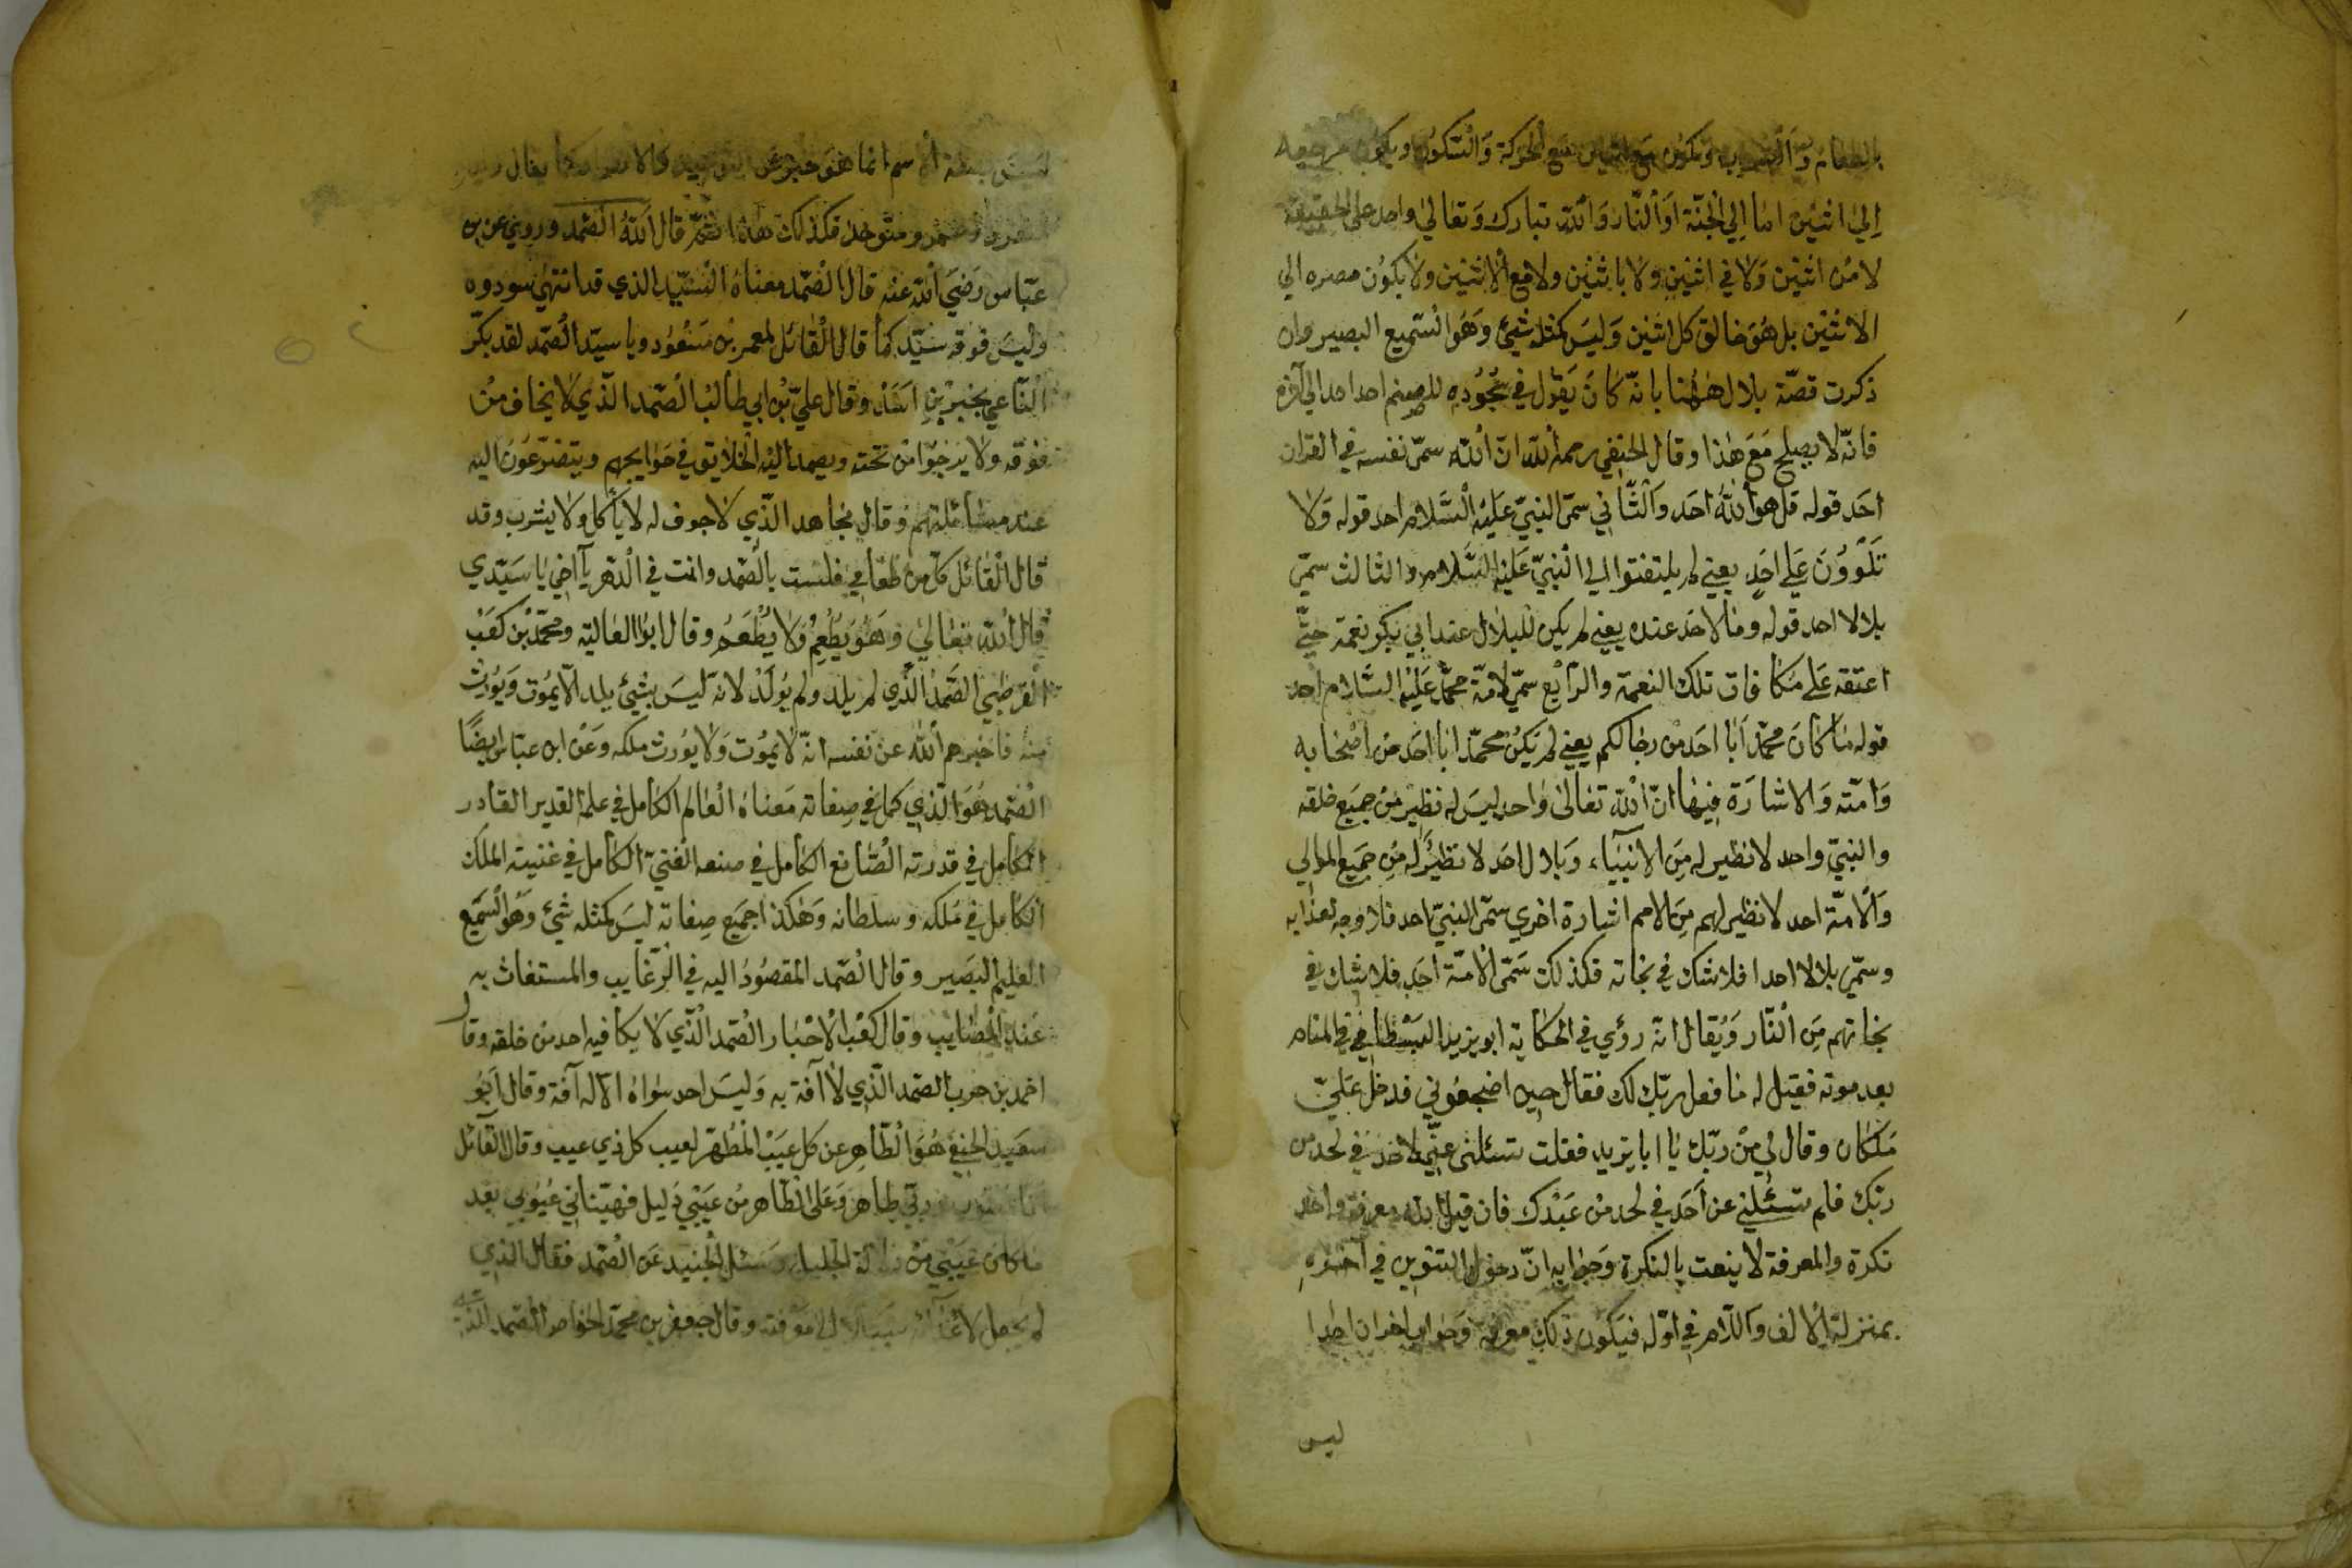 بالطعام والشراب ويكون مع اثنين مع الحركة والسكون ويكون مرجعه
الى اثنين اما الي الجنة او النار والله تبارك وتعالى واحد على الحقيقة
لا من اثنين ولا في اثنين ولا باثنين ولا مع الاثنين ولا يكون مصره الي
الاثنين بل هو خالق كل اثنين وليس كمثله شئ وهو السميع البصير وان
ذكرت قصة بلال ههنا بانه كان يقول في سجوده للصنم احد احد الي آخره
فانه لا يصلح مع هذا وقال الحنفي رحمه الله ان الله سمى نفسه في القران
احد قوله قل هو الله احد والثاني سمى النبي عليه السلام احد قوله ولا
تلوون على احد يعني لم يلتفتوا الى النبي عليه السلام والثالث سمى
بلالا احد قوله وما لاحد عنده يعني لم يكن لبلال عند ابي بكر نعمة حتى
اعتقه على مكافات تلك النعمة والرابع سمى لامة محمد عليه السلام احد
قوله ما كان محمد ابا احد من رجالكم يعني لم يكن محمد ابا احد من اصحابه
وامته والاشارة فيها ان الله تعالى واحد ليس له نظير من جميع خلقه
والنبي واحد لا نظير له من الانبياء وبلال احد لا نظير له من جميع الموالي
والامة احد لا نظير لهم من الامم اشارة اخري سمى النبي احد فلا وجه لعذابه
وسمى بلالا احدا فلا شك في نجاته فكذلك سمى الامة احد فلا شك في
نجاتهم من النار ويقال انه رؤي في الحكاية ابو يزيد البسطامي في المنام
بعد موته فقيل له ما فعل ربك لك فقال حين اضجعوني فدخل علي
ملكان وقال لي من ربك يا ابا يزيد فقلت تسئلنى عني لاحد في لحد من
ربك فلم تسئلني عن احد في لحد من عبدك فان قيل الله معرفة واحد
نكرة والمعرفة لا ينعت بالنكرة وجوابه ان دخول التنوين في اخره
بمنزلة الالف واللام في اوله فيكون ذلك معرفة وجواب اخر ان احدا
ليس
ليس بصفة انما هو خبر عن
ومتوحد فكذلك هذا ثم قال الله الصمد وروي عن بن
عباس رضي الله عنه قال الصمد معناه السيد الذي قد انتهى سودوه
وليس فوقه سيد كما قال القائل لمعمر بن مسعود ويا سيد الصمد لقد بكر
الناعي بخير بن اسد وقال علي بن ابي طالب الصمد الذي لا يخاف من
فوقه ولا يرجوا من تحته ويصمد اليه الخلايق في حوايجهم ويتضرعون اليه
عند مسائلتهم وقال مجاهد الذي لا جوف له لا يأكل ولا يشرب وقد
قال القائل كل من طعامي فلست بالصمد وانت في الدهر يا اخي يا سيدي
قال الله تعالى وهو يطعم ولا يطعم وقال ابو العالية ومحمد بن كعب
القرظي الصمد الذي لم يلد ولم يولد لانه ليس بشئ يلد الا يموت ويورث
منه فاخبرهم الله عن نفسه انه لا يموت ولا يورث ملكه وعن ابن عباس ايضا
الصمد هو الذي كمل في صفاته معناه العالم الكامل في علمه القدير القادر
الكامل في قدرته الصانع الكامل في صنعه الغني الكامل في غنيته الملك
الكامل في ملكه وسلطانه وهكذا جميع صفاته ليس كمثله شئ وهو السميع
العليم البصير وقال الصمد المقصود اليه في الرغايب والمستغاث به
عند المصايب وقال كعب الاحبار الصمد الذي لا يكافيه احد من خلقه وقال
احمد بن حرب الصمد الذي لا آفة به وليس احد سواه الا له آفة وقال ابو
سعيد الحنفي هو الطاهر عن كل عيب المطهر لعيب كل ذي عيب وقال القائل
طاهر وعلى الطاهر من عيبي دليل فهيتاني عيوبي بعد
ما كان عيبي من الجليل وسئل الجنيد عن الصمد فقال الذي
لم يجعل لاعدائه سبيلا الى معرفته وقال جعفر بن محمد الخواص الصمد الذي